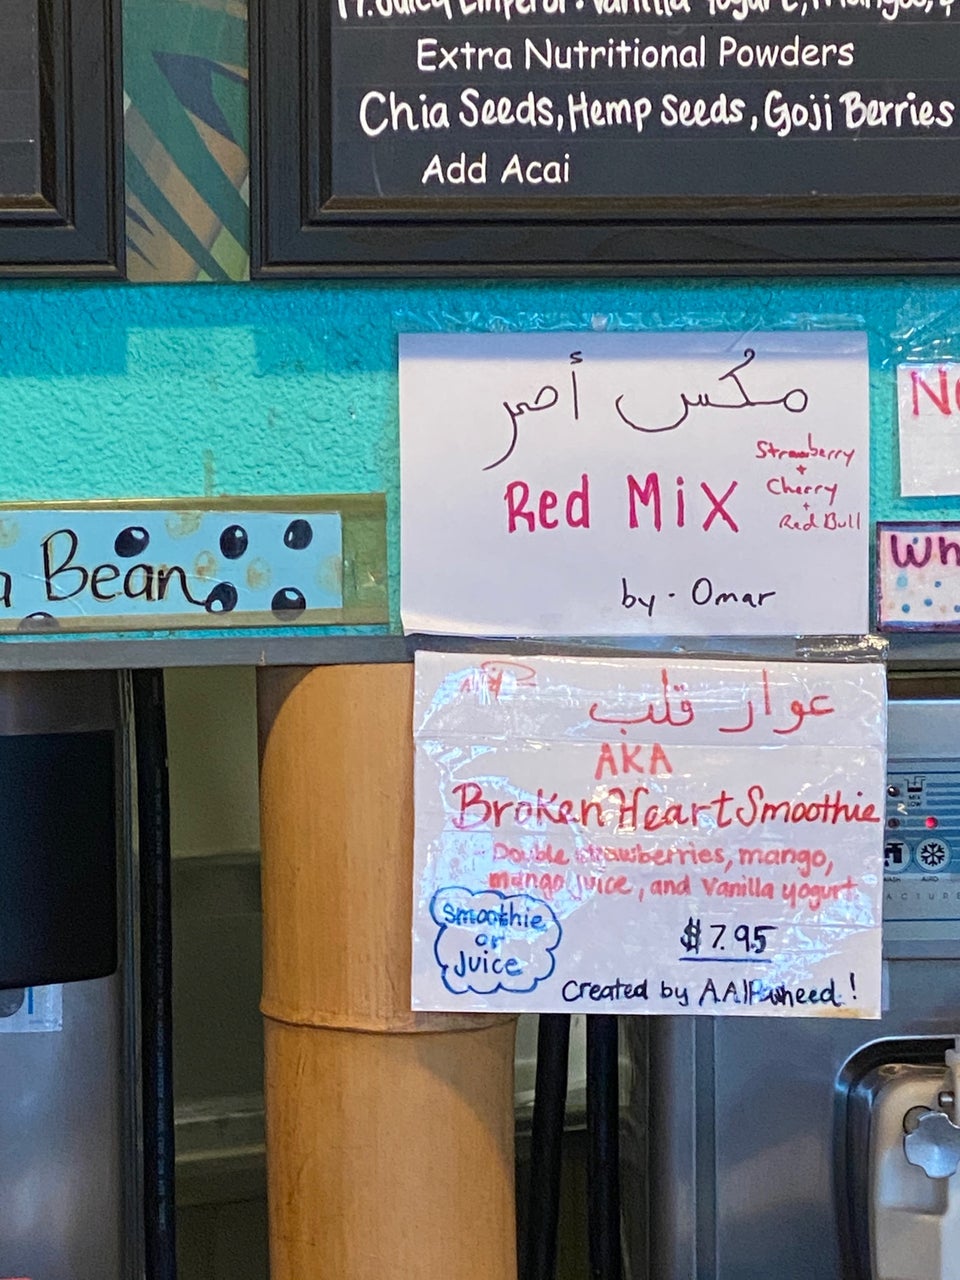 Extra Nutritional Powders
Chia Seeds, Hemp Seeds, Goji Berries
Add Acai
Bean
مكس أحمر
Red Mix
Strawberry
+
Cherry
+
Red Bull
by - Omar
عوار قلب
AKA
Broken Heart Smoothie
Double strawberries, mango,
mango juice, and Vanilla yogurt
Smoothie
or
Juice
$7.95
Created by